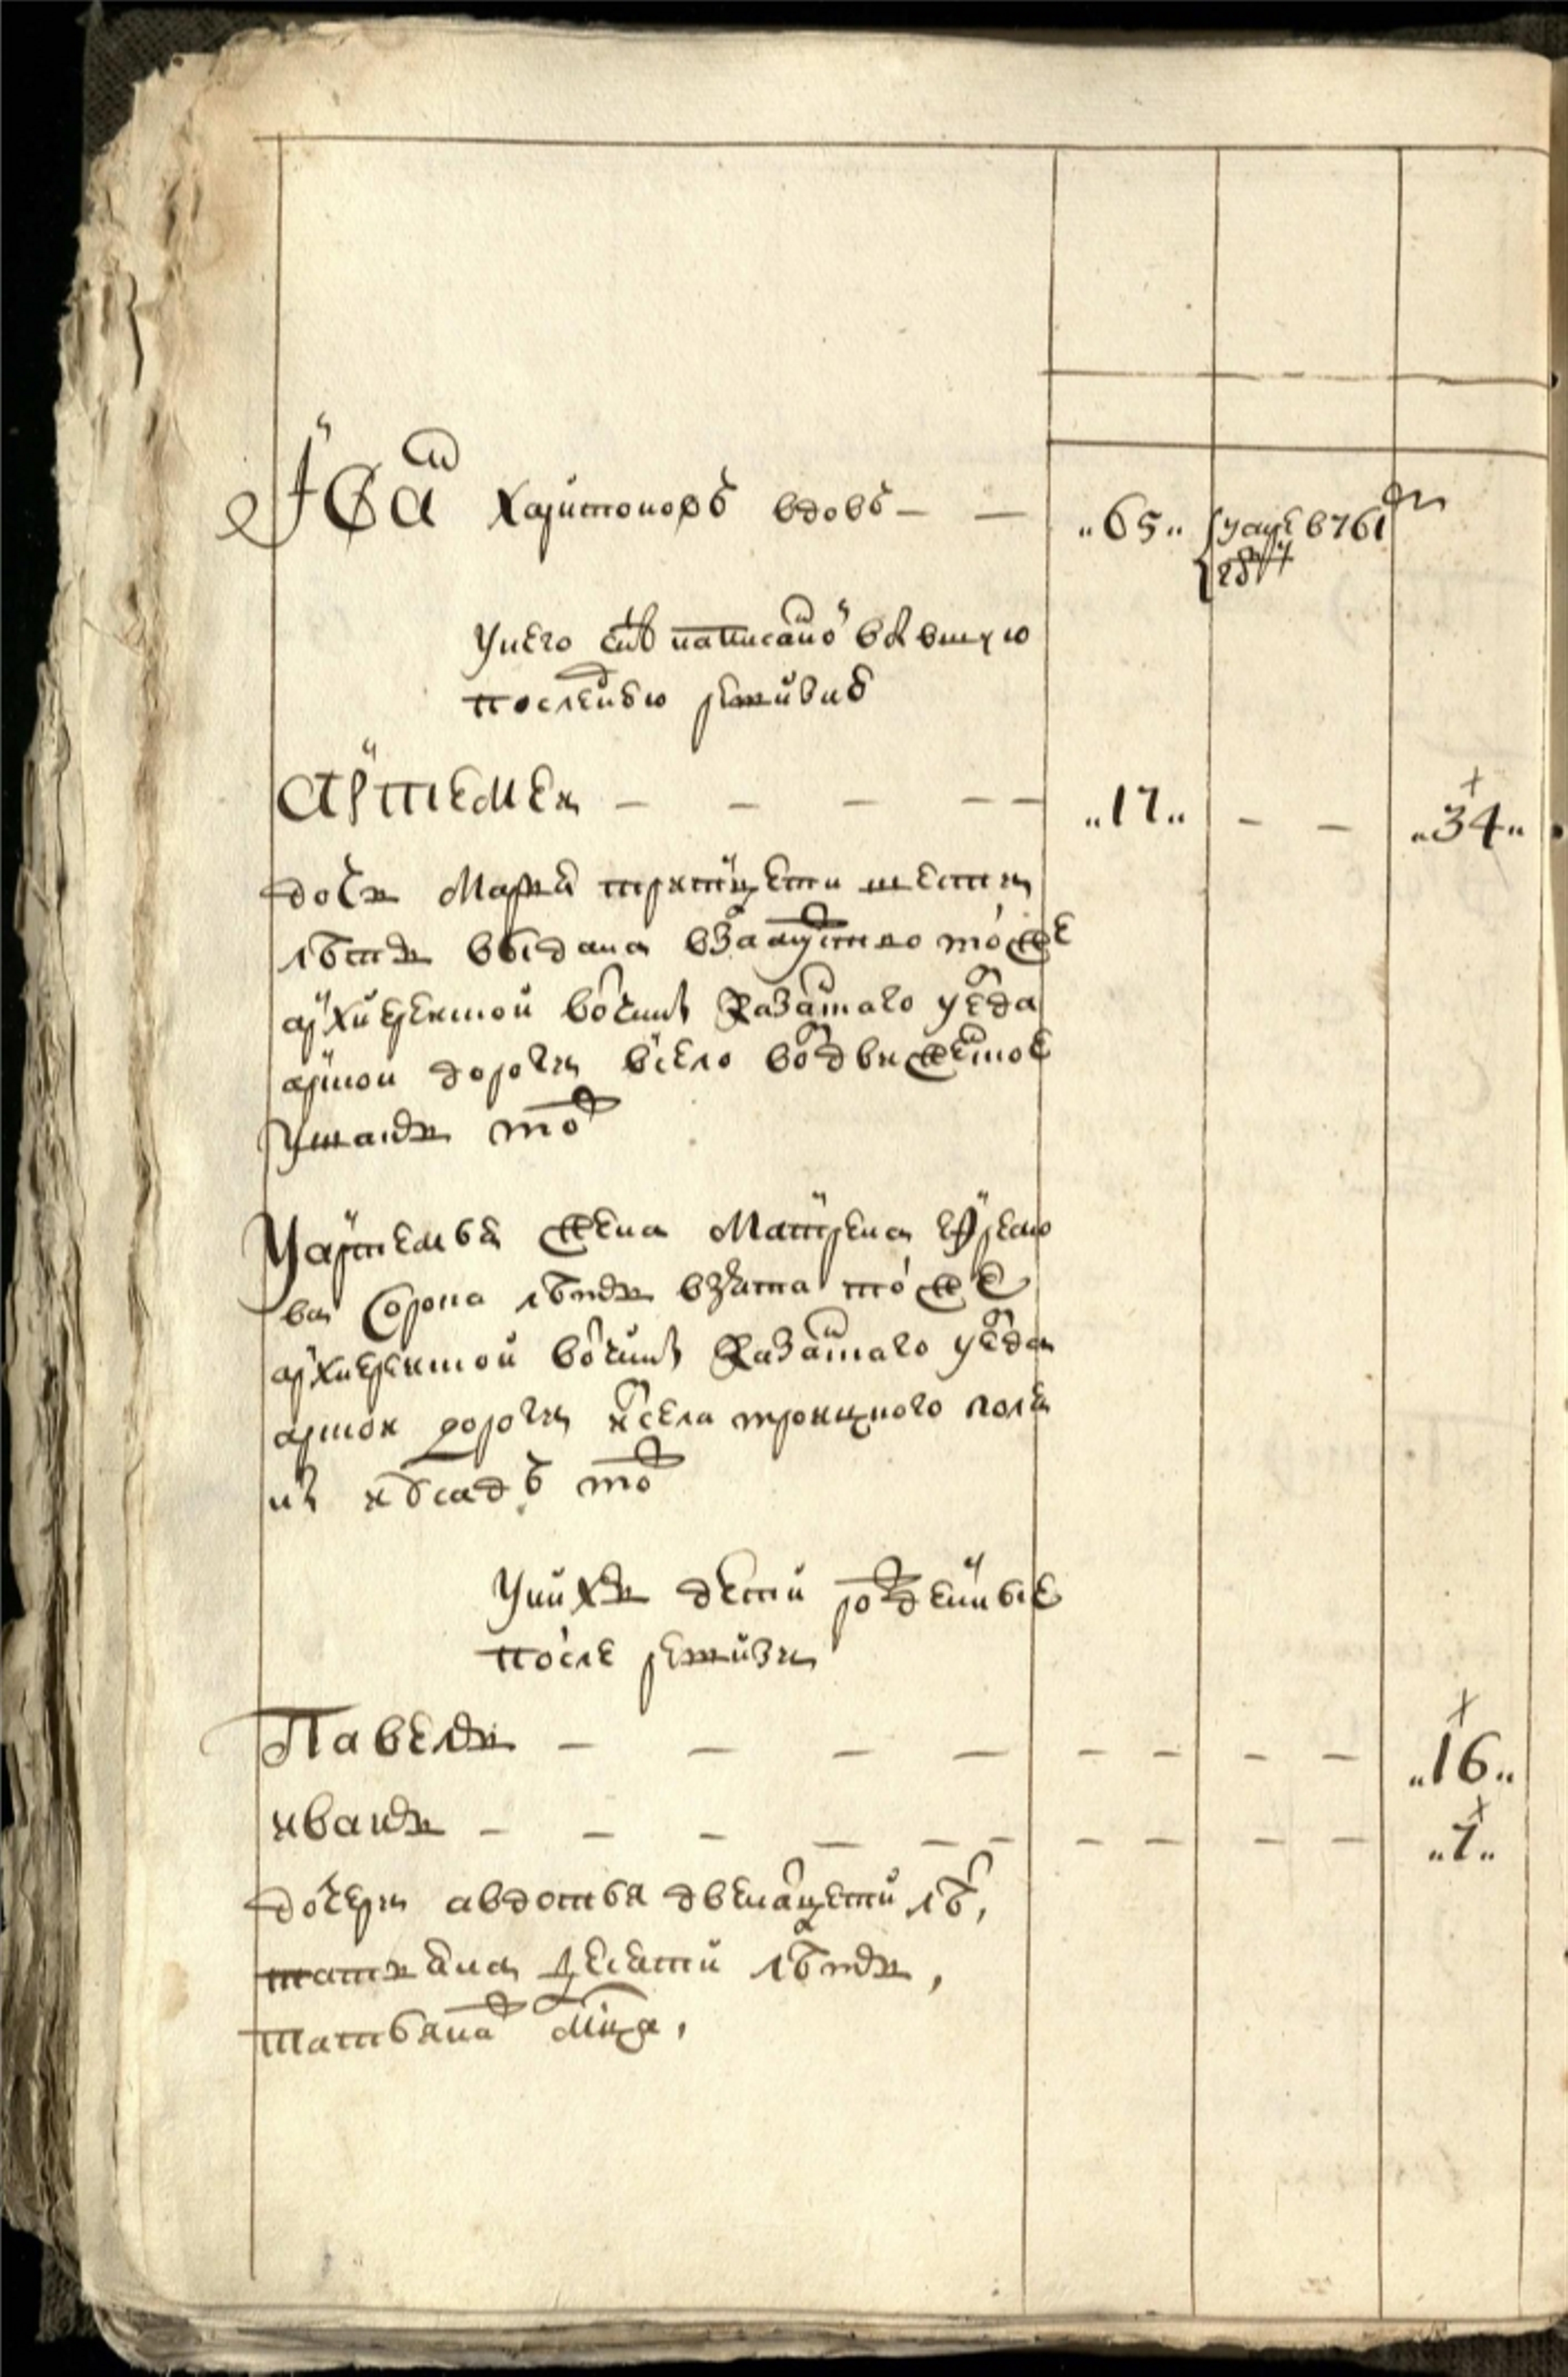 Іван Харитоновъ вдовъ — — „65„ умре в 761м
году
У него сынъ написанной в бывшую
последнюю ревизию
Артемей — — — — — „17„ — — „34„
дочь Марья тритцети шести
летъ выдана в замуство той же
архиерейской вотчины Казанского уезда
арской дороги в село воздвиженское
ушланъ тож
У Артемья жена Матрена ефремо
ва сорока летъ взята той же
архиерейской вотчины Казанского уезда
арской дороги из села троицкого поля
ны тож
У нихъ дети рожденные
после ревизии
Павелъ — — — — — — — — „16„
иванъ — — — — — — — — — — „7„
дочери авдотья двенатцети летъ,
десяти летъ,
татьяна дву месяца,